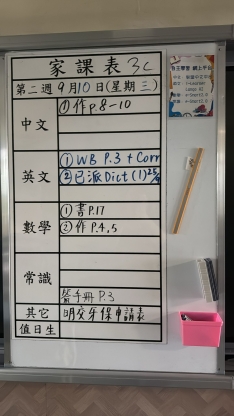 家課表 3C
第二週 9月10日(星期三)
中文
① 作 p.8-10
英文
① WB P.3 + Corr
② 已派 Dict (1) 25/9
數學
① 書 P.17
② 作 P.4,5
常識
手冊 P.3
其它
明交牙保申請表
值日生
自主學習 網上平台